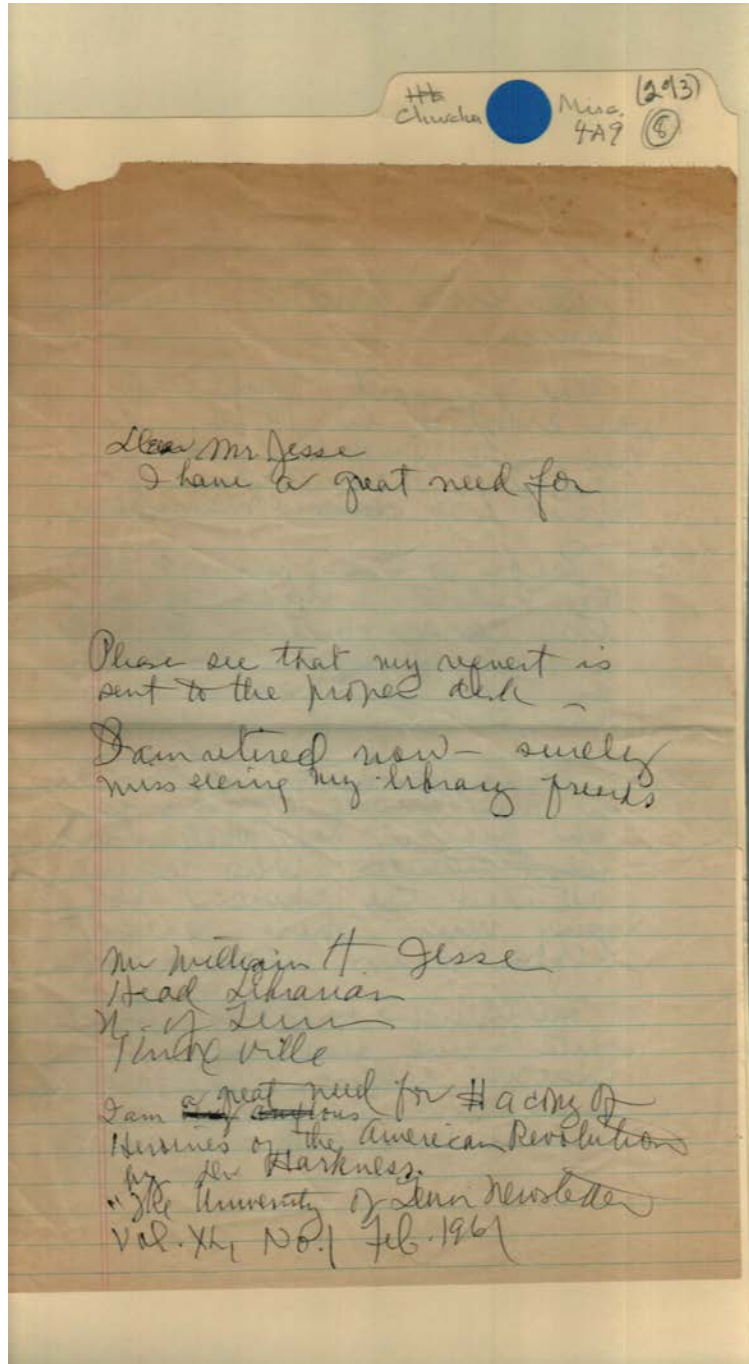 Misc. (2 of 3)
4A9 8
Dear Mr Jesse
I have a great need for
Please see that my request is
sent to the proper desk –
I am retired now – surely
miss seeing my library friends
Mr William H. Jesse
Head Librarian
U. of Tenn
Knoxville
a great need for a copy of
I am very anxious
Heroines of the American Revolution
by Harkness.
"The University of Tenn Newsletter
Vol. XL, No. 1 Feb. 1961